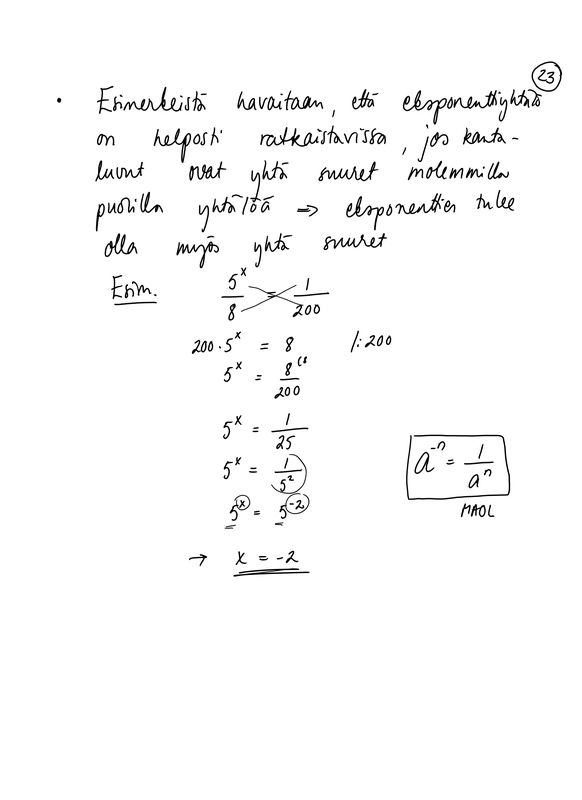 23
• Esimerkeistä havaitaan, että eksponenttiyhtälö
on helposti ratkaistavissa, jos kanta-
luvut ovat yhtä suuret molemmilla
puolilla yhtälöä => eksponenttien tulee
olla myös yhtä suuret
Esim. 5^x/8 = 1/200
200·5^x = 8 |:200
5^x = 8/200 (8
5^x = 1/25
5^x = 1/5^2
a^-n = 1/a^n
5^x = 5^-2
MAOL
→ x = -2